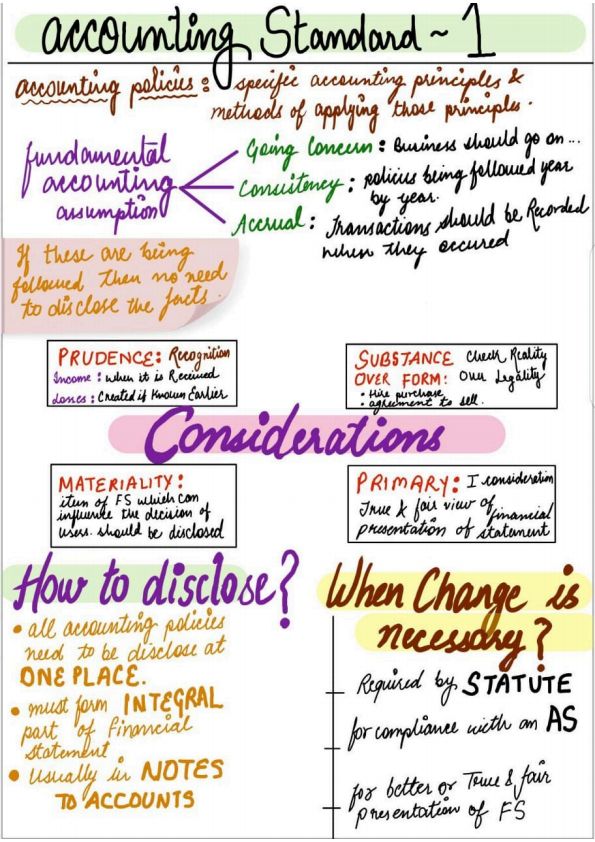 accounting Standard ~ 1
accounting policies : specific accounting principles &
methods of applying those principles.
fundamental
accounting
assumption
Going Concern : Business should go on ...
Consistency : policies being followed year
by year.
Accrual : Transactions should be Recorded
when they occured
If these are being
followed then no need
to disclose the facts.
PRUDENCE: Recognition
Income : when it is Received
Losses : Created if Known Earlier
SUBSTANCE Check Reality
OVER FORM: Over Legality
• Hire purchase
• agreement to sell.
Considerations
MATERIALITY:
item of FS which can
influence the decision of
users. should be disclosed
PRIMARY: I consideration
True & fair view of financial
presentation of statement
How to disclose?
• all accounting policies
need to be disclose at
ONE PLACE.
• must form INTEGRAL
part of Financial
statement
• Usually in NOTES
TO ACCOUNTS
When Change is
necessary?
Required by STATUTE
for compliance with an AS
for better or True & fair
presentation of FS